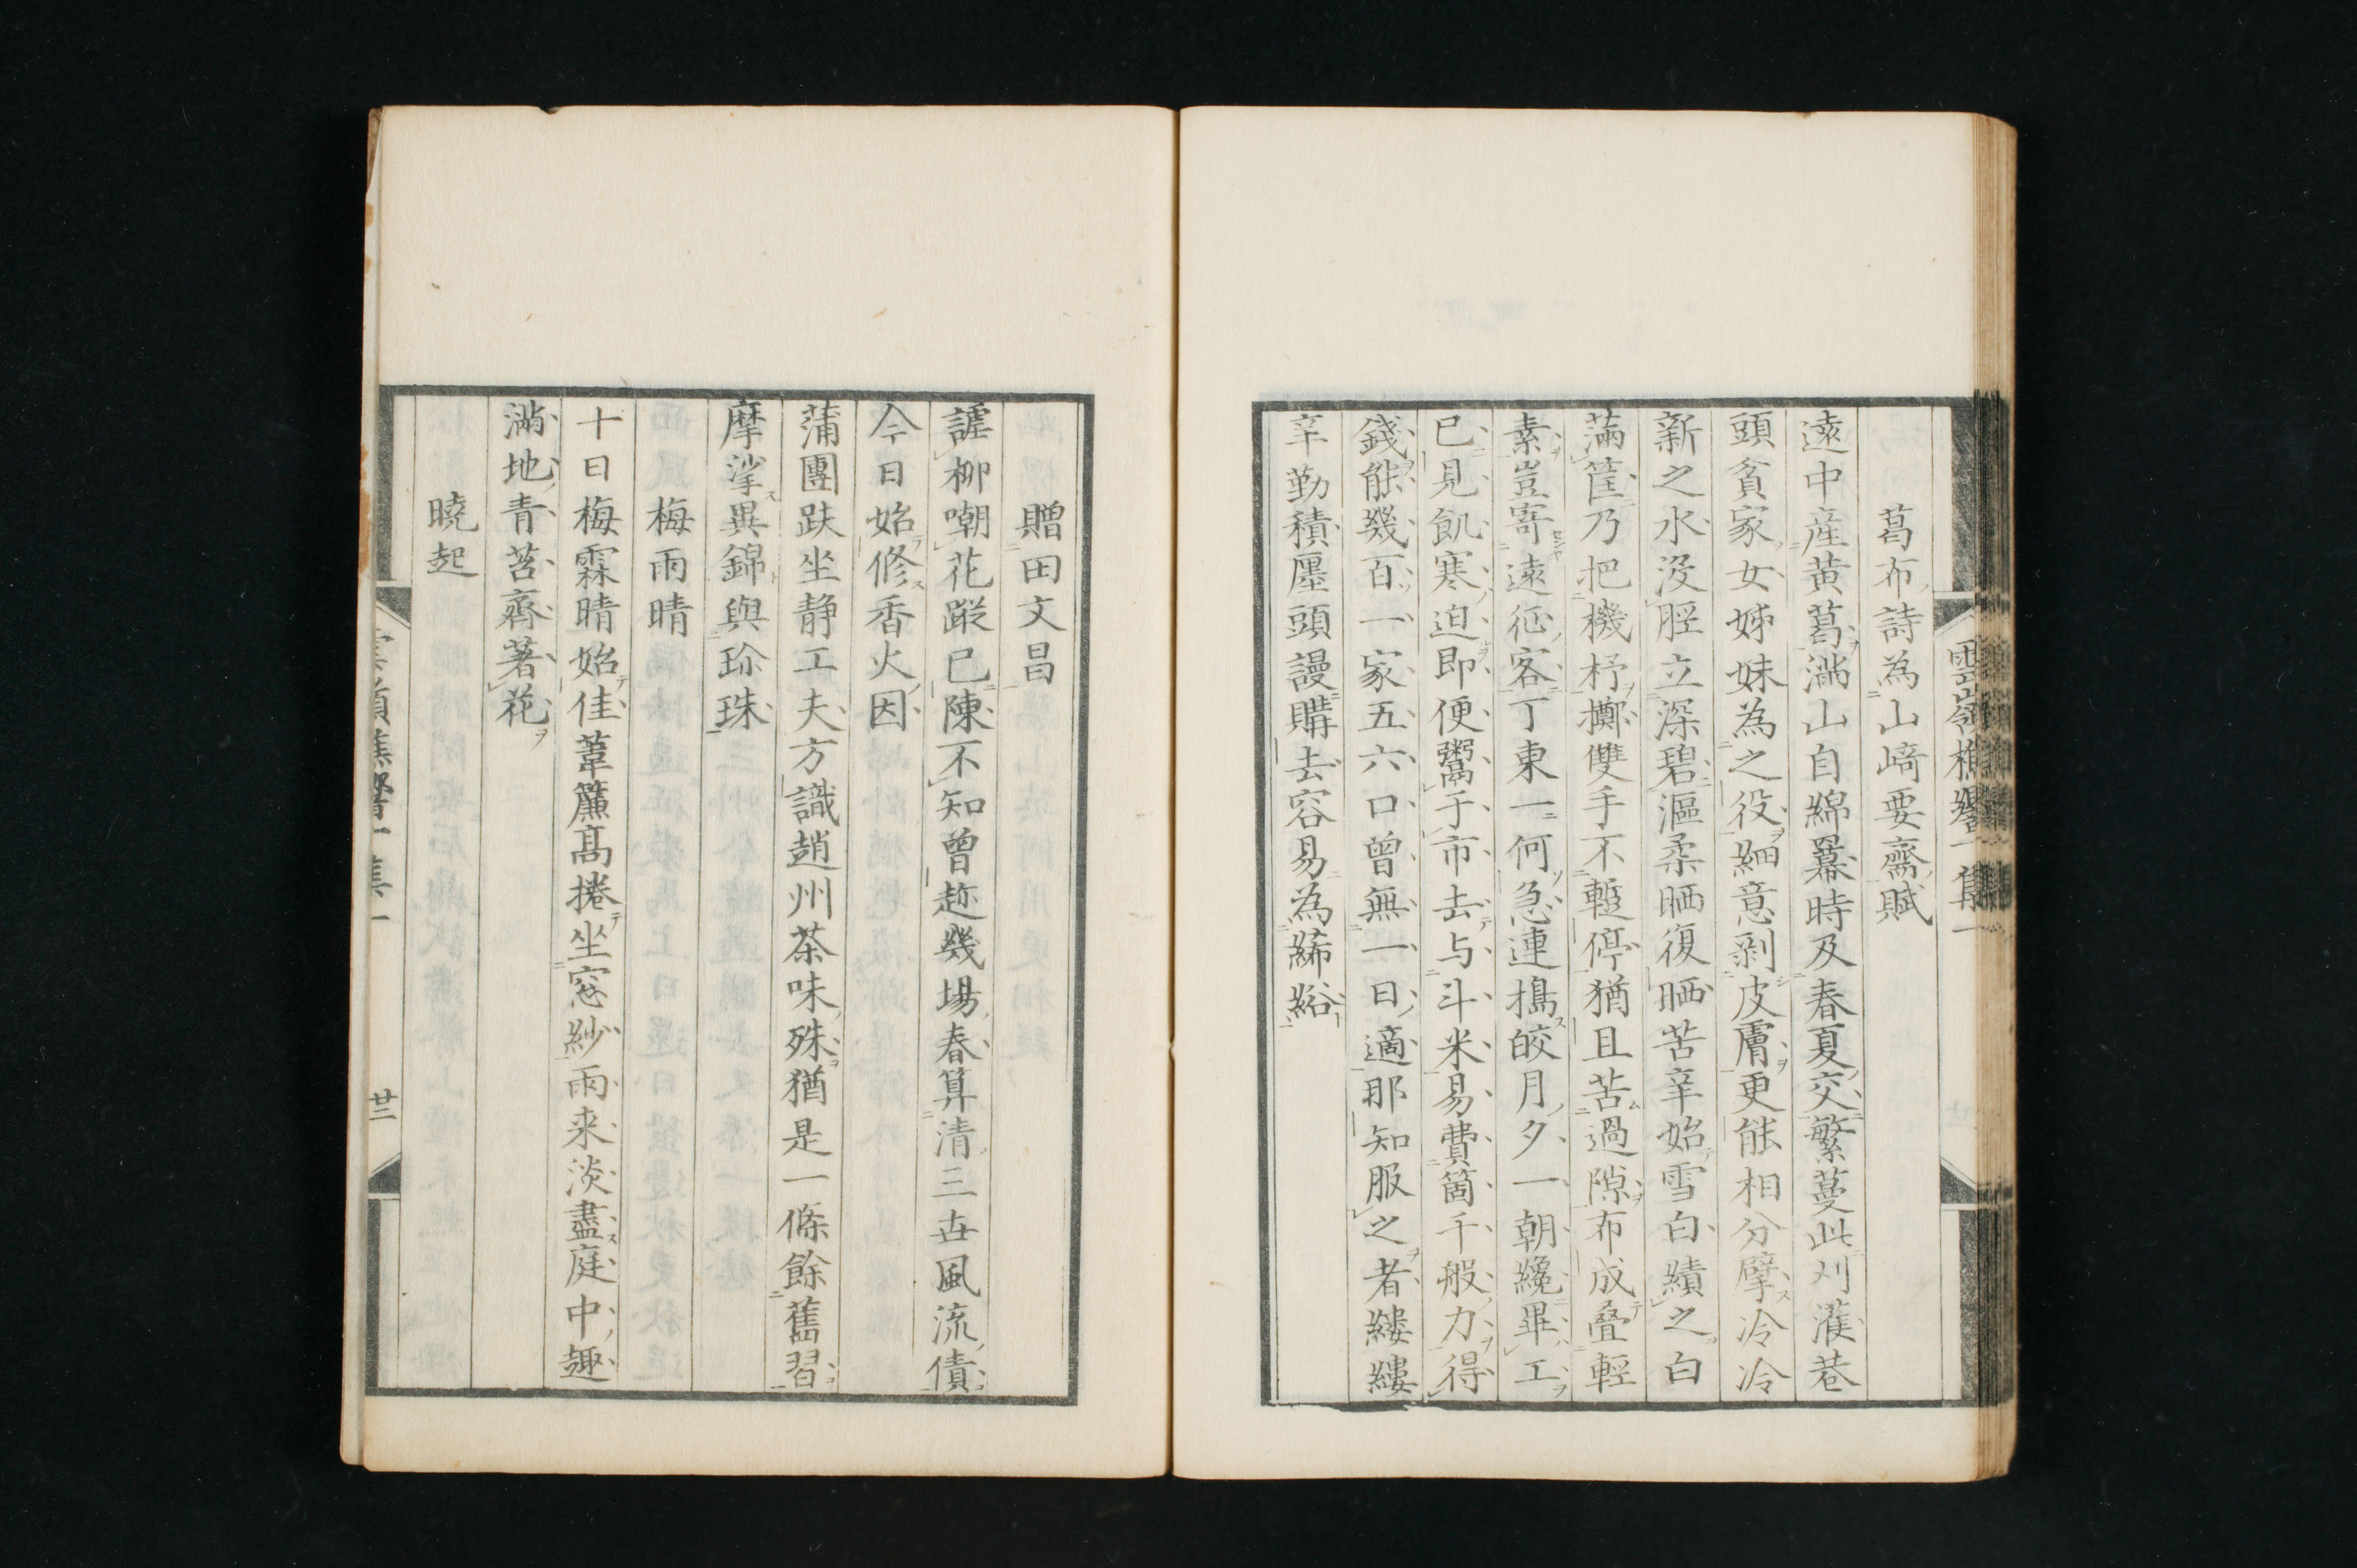 雲嶺樵響一集一
葛布詩為山﨑要齋賦
遠中産黄葛滿山自綿羃時及春夏交繁蔓此刈濩巷
頭貧家女姊妹為之役細意剥皮膚更能相分擘冷冷
新之水没脛立深碧漚柔晒復晒苦辛始雪白績之白
滿筐乃把機杼擲雙手不蹔停猶且苦過隙布成疊輕
素豈寄遠征客丁東一何急連擣皎月夕一朝纔畢工
已見飢寒迫即便鬻于市去与斗米易費箇千般力得
錢能幾百一家五六口曾無一日適那知服之者縷縷
辛勤積廛頭謾購去容易為絺綌
贈田文昌
謔柳嘲花蹤已陳不知曾趂幾場春算清三世風流債
今日始修香火因
蒲團趺坐静工夫方識趙州茶味殊猶是一條餘舊習
摩挲異錦與珍珠
梅雨晴
十日梅霖晴始佳葦簾髙捲坐窓紗雨来淡盡庭中趣
滿地青苔齊著花
曉起
雲嶺樵響一集一
廿三